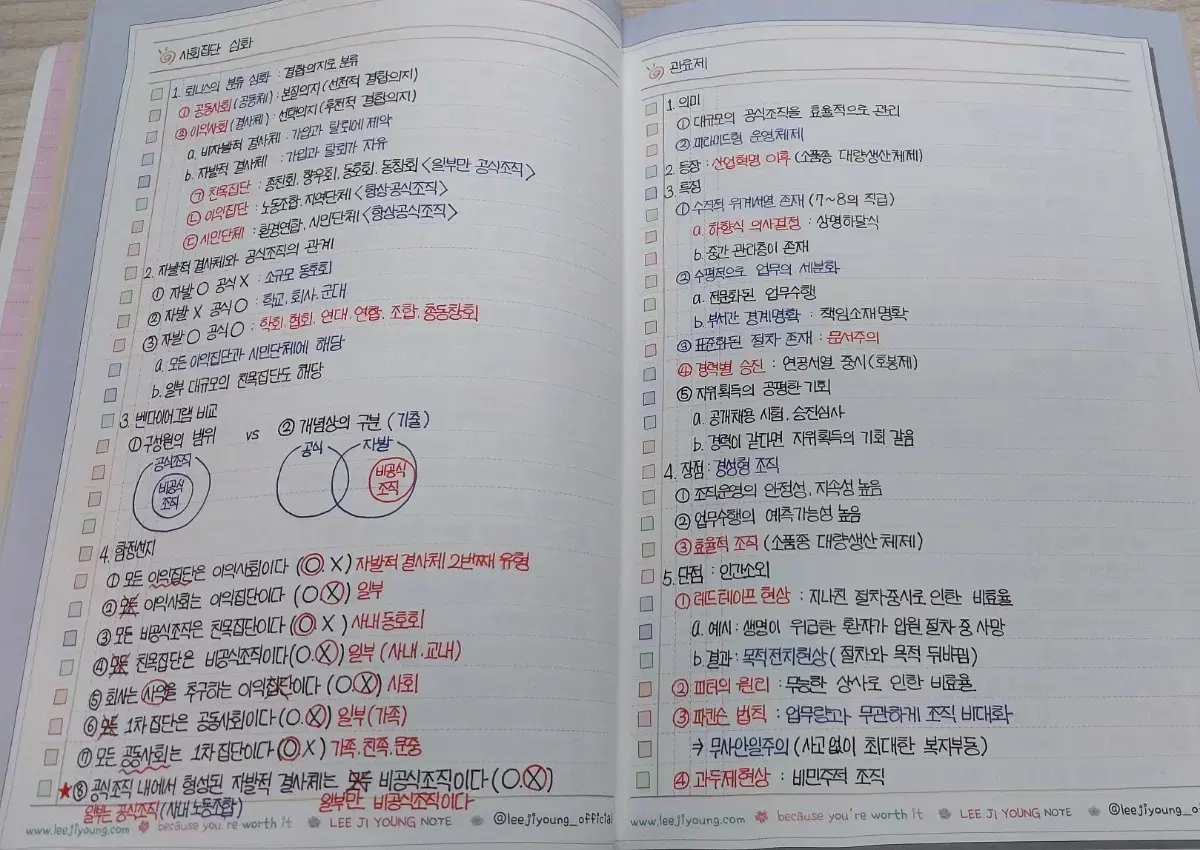 사회집단 심화
1. 퇴니스의 분류 심화 : 결합의지로 분류
① 공동사회(공동체) : 본질의지(선천적 결합의지)
② 이익사회(결사체) : 선택의지(후천적 결합의지)
a. 비자발적 결사체 : 가입과 탈퇴에 제약
b. 자발적 결사체 : 가입과 탈퇴가 자유
㉠ 친목집단 : 종친회, 향우회, 동호회, 동창회 <일부만 공식조직>
㉡ 이익집단 : 노동조합, 지역단체 <항상공식조직>
㉢ 시민단체 : 환경연합, 시민단체 <항상공식조직>
2. 자발적 결사체와 공식조직의 관계
① 자발 O 공식 X : 소규모 동호회
② 자발 X 공식 O : 학교, 회사, 군대
③ 자발 O 공식 O : 학회, 협회, 연대, 연합, 조합, 총동창회
a. 모든 이익집단과 시민단체에 해당
b. 일부 대규모의 친목집단도 해당
3. 벤다이어그램 비교
① 구성원의 범위 vs ② 개념상의 구분 (기출)
공식조직
비공식
조직
공식
자발
비공식
조직
4. 함정선지
① 모든 이익집단은 이익사회이다 (O X) 자발적 결사체 2번째 유형
② 모든 이익사회는 이익집단이다 (O X) 일부
③ 모든 비공식조직은 친목집단이다 (O X) 사내동호회
④ 모든 친목집단은 비공식조직이다 (O. X) 일부 (사내. 교내)
⑤ 회사는 사익을 추구하는 이익집단이다 (O X) 사회
⑥ 모든 1차 집단은 공동사회이다 (O. X) 일부(가족)
⑦ 모든 공동사회는 1차 집단이다 (O X) 가족, 친족, 문중
★⑧ 공식조직 내에서 형성된 자발적 결사체는 모두 비공식조직이다 (O X)
일부는 공식조직(사내노동조합) 일부만 비공식조직이다
www.leejiyoung.com because you're worth it LEE JI YOUNG NOTE @leejiyoung_official
관료제
1. 의미
① 대규모의 공식조직을 효율적으로 관리
② 피라미드형 운영체제
2. 등장 : 산업혁명 이후 (소품종 대량생산체제)
3. 특징
① 수직적 위계서열 존재 (7~8의 직급)
a. 하향식 의사결정 : 상명하달식
b. 중간 관리층이 존재
② 수평적으로 업무의 세분화
a. 전문화된 업무수행
b. 부서간 경계명확 : 책임소재명확
③ 표준화된 절차 존재 : 문서주의
④ 경력별 승진 : 연공서열 중시(호봉제)
⑤ 지위획득의 공평한 기회
a. 공개채용 시험, 승진심사
b. 경력이 같다면 지위획득의 기회 같음
4. 장점 : 경성형 조직
① 조직운영의 안정성, 지속성 높음
② 업무수행의 예측가능성 높음
③ 효율적 조직 (소품종 대량생산체제)
5. 단점 : 인간소외
① 레드테이프 현상 : 지나친 절차중시로 인한 비효율
a. 예시 : 생명이 위급한 환자가 입원 절차 중 사망
b. 결과 : 목적전치현상 (절차와 목적 뒤바뀜)
② 피터의 원리 : 무능한 상사로 인한 비효율
③ 파킨슨 법칙 : 업무량과 무관하게 조직 비대화
⇒ 무사안일주의 (사고없이 최대한 복지부동)
④ 과두제현상 : 비민주적 조직
www.leejiyoung.com because you're worth it LEE JI YOUNG NOTE @leejiyoung_o